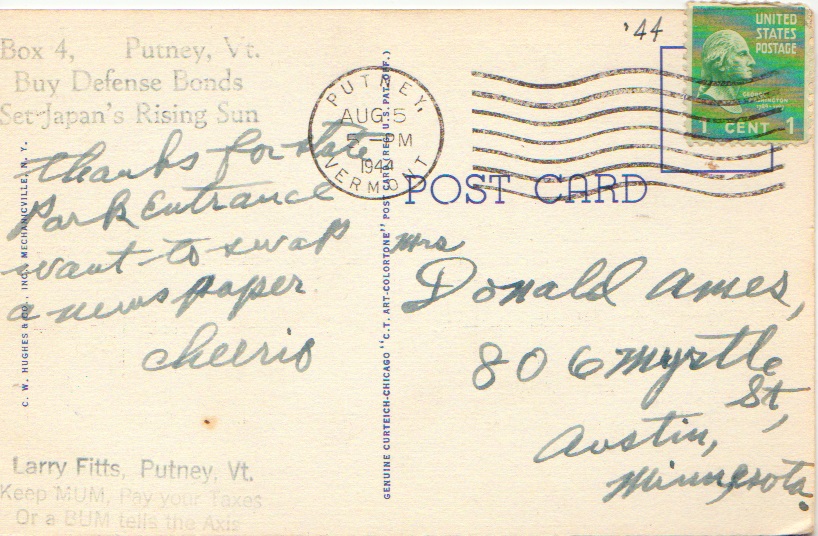 '44
UNITED
STATES
POSTAGE
GEORGE
WASHINGTON
1 CENT 1
Box 4, Putney, Vt.
Buy Defense Bonds
Set Japan's Rising Sun
PUTNEY
AUG 5
5 -PM
1944
VERMONT
POST CARD
thanks for state
Park Entrance
want to swap
a news paper
cheerio
Mrs
Donald Ames,
806 Myrtle
St,
Austin,
Minnesota.
Larry Fitts, Putney, Vt.
Keep MUM, Pay your Taxes
Or a BUM tells the Axis
C. W. HUGHES & CO., INC., MECHANICVILLE, N. Y.
GENUINE CURTEICH-CHICAGO "C.T. ART-COLORTONE" POST CARD (REG. U.S. PAT. OFF.)